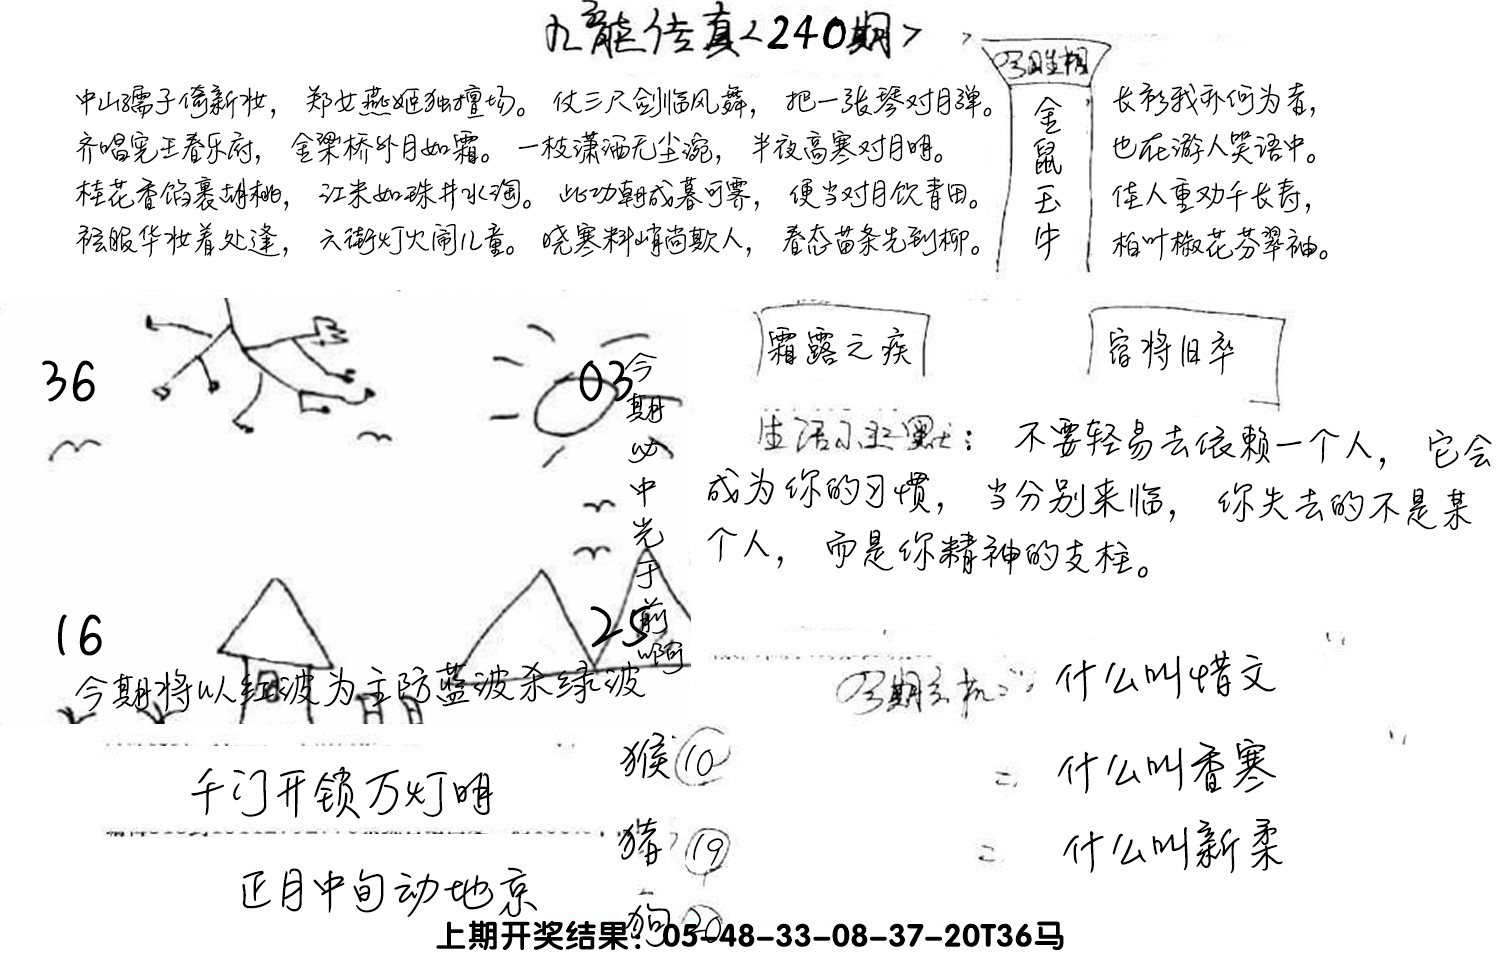 九龙传真<240期>
中山孺子倚新妆，郑女燕姬独擅场。仗三尺剑临风舞，把一张琴对月弹。
齐唱宪王春乐府，金梁桥外月如霜。一枝潇洒无尘涴，半夜高寒对月明。
桂花香馅裹胡桃，江米如珠井水淘。此功朝成暮可霁，便当对月饮青田。
袨服华妆着处逢，六街灯火闹儿童。晓寒料峭尚欺人，春态苗条先到柳。
今期生相
金鼠玉牛
长衫我亦何为者，
也在游人笑语中。
佳人重劝千长寿，
柏叶椒花芬翠袖。
36
03
16
25
今期必中光于前啊
今期将以红波为主防蓝波杀绿波
霜露之疾
宿将旧卒
生活幽默：不要轻易去依赖一个人，它会
成为你的习惯，当分别来临，你失去的不是某
个人，而是你精神的支柱。
今期玄机：什么叫惜文
= 什么叫香寒
= 什么叫新柔
千门开锁万灯明
正月中旬动地京
猴⑩
猪⑲
狗⑳
上期开奖结果：05-48-33-08-37-20T36马